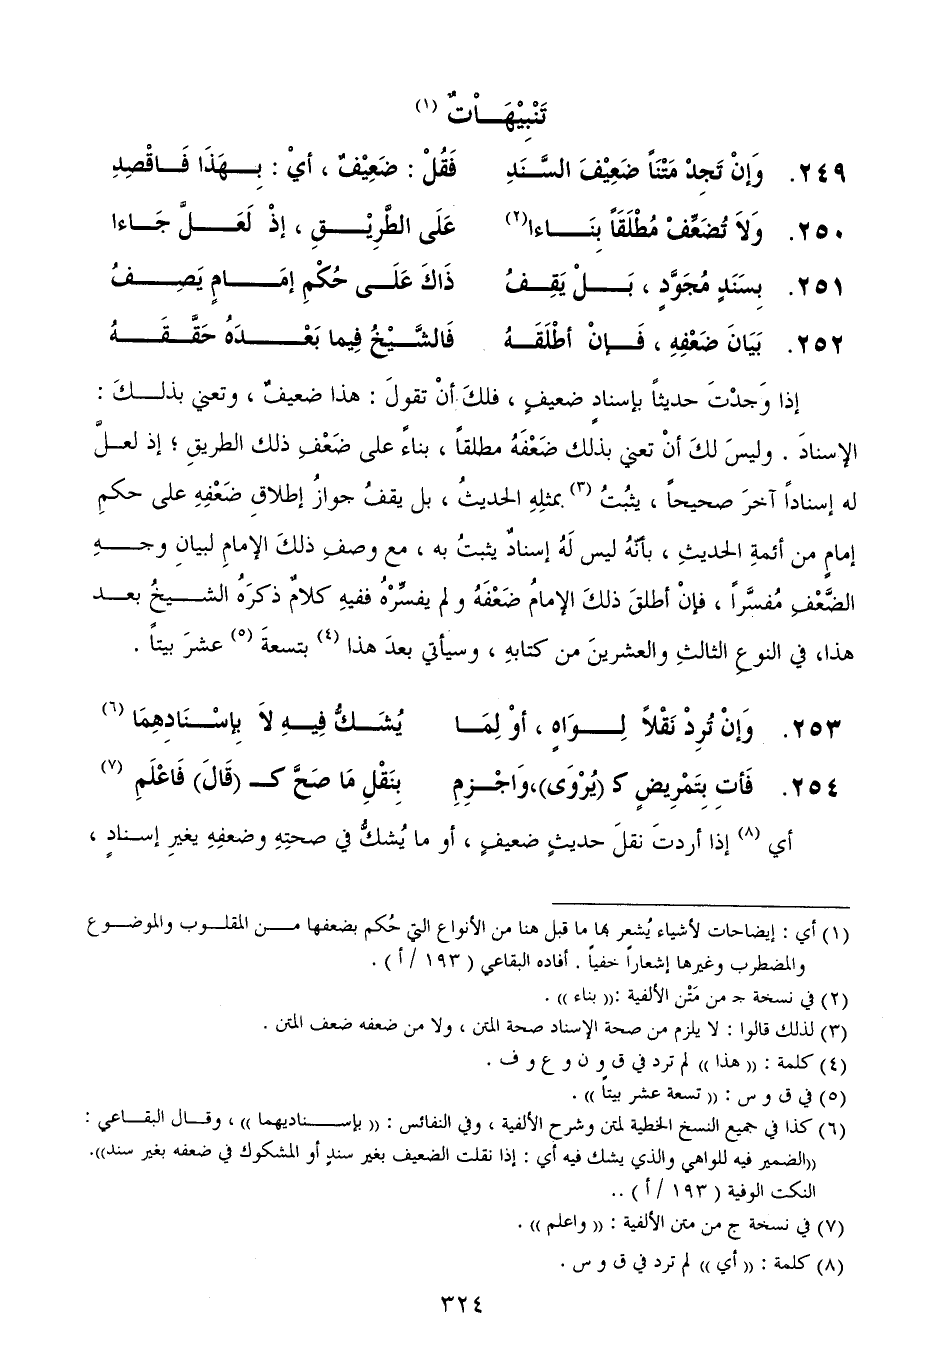 تَنْبِيْهَـاتٌ (١)
٢٤٩. وَإِنْ تَجِدْ مَتْنَاً ضَعِيْفَ السَّـنَدِ فَقُلْ : ضَعِيْفٌ ، أيْ : بِـهَذَا فَـاقْصِدِ
٢٥٠. وَلاَ تُضَعِّفْ مُطْلَقَاً بِنَـاءا(٢) عَلَى الطَّرِيْـقِ ، إذْ لَعَـلَّ جَـاءا
٢٥١. بِسَنَدٍ مُجَوَّدٍ ، بَـلْ يَقِفُ ذَاكَ عَلَـى حُكْمِ إمَـامٍ يَصِـفُ
٢٥٢. بَيَانَ ضَعْفِهِ ، فَـإنْ أطْلَقَـهُ فَالشَّيْخُ فِيما بَعْـدَهُ حَقَّقَـهُ
إذا وَجدْتَ حديثاً بإسنادٍ ضعيفٍ ، فلكَ أنْ تقولَ : هذا ضعيفٌ ، وتعني بذلـكَ :
الإسنادَ . وليسَ لكَ أنْ تعني بذلك ضَعْفَهُ مطلقاً ، بناءً على ضَعْفِ ذلك الطريقِ ؛ إذ لعلَّ
له إسناداً آخرَ صحيحاً ، يثبُتُ (٣) بمثلِهِ الحديثُ ، بل يقفُ جوازُ إطلاقِ ضَعْفِهِ على حكمِ
إمامٍ من أئمةِ الحديثِ ، بأنَّهُ ليس لَهُ إسنادٌ يثبتُ به ، مع وصفِ ذلكَ الإمامِ لبيانِ وجـهِ
الضَّعْفِ مُفسَّراً ، فإنْ أطلقَ ذلكَ الإمامُ ضَعْفَهُ ولم يفسِّرْهُ ففيهِ كلامٌ ذكرَهُ الشـيخُ بعـد
هذا، في النوعِ الثالثِ والعشرينَ من كتابهِ ، وسيأتي بعدَ هذا (٤) بتسعةَ (٥) عشرَ بيتاً .
٢٥٣. وَإنْ تُرِدْ نَقْلاً لِـوَاهٍ ، أوْ لِمَـا يُشَـكُّ فِيـهِ لاَ بِإسْـنَادِهِمَا (٦)
٢٥٤. فَأتِ بِتَمْرِيضٍ كـ (يُرْوَى)،وَاجْـزِمِ بِنَقْلِ مَا صَحَّ كـ (قَالَ) فَاعْلَمِ (٧)
أي (٨) إذا أردتَ نقلَ حديثٍ ضعيفٍ ، أو ما يُشكُّ في صحتِهِ وضعفِهِ بغيرِ إسـنادٍ ،
(١) أي : إيضاحات لأشياء يُشعر بها ما قبل هنا من الأنواع التي حُكم بضعفها مـن المقلوب والموضـوع
والمضطرب وغيرها إشعاراً خفياً . أفاده البقاعي ( ١٩٣ / أ ) .
(٢) في نسخة جـ من مَتْن الألفية :(( بناء )) .
(٣) لذلك قالوا : لا يلزم من صحة الإسناد صحة المتن ، ولا من ضعفه ضعف المتن .
(٤) كلمة : (( هذا )) لم ترد في ق و ن و ع و ف .
(٥) في ق و س : (( تسعة عشر بيتاً )) .
(٦) كذا في جميع النسخ الخطية لمتن وشرح الألفية ، وفي النفائس : (( بإسـناديهما )) ، وقـال البقاعي :
((الضمير فيه للواهي والذي يشك فيه أي : إذا نقلت الضعيف بغير سندٍ أو المشكوك في ضعفه بغير سند)).
النكت الوفية ( ١٩٣ / أ ) ..
(٧) في نسخة ج من متن الألفية : (( واعلم )) .
(٨) كلمة : (( أي )) لم ترد في ق و س .
٣٢٤